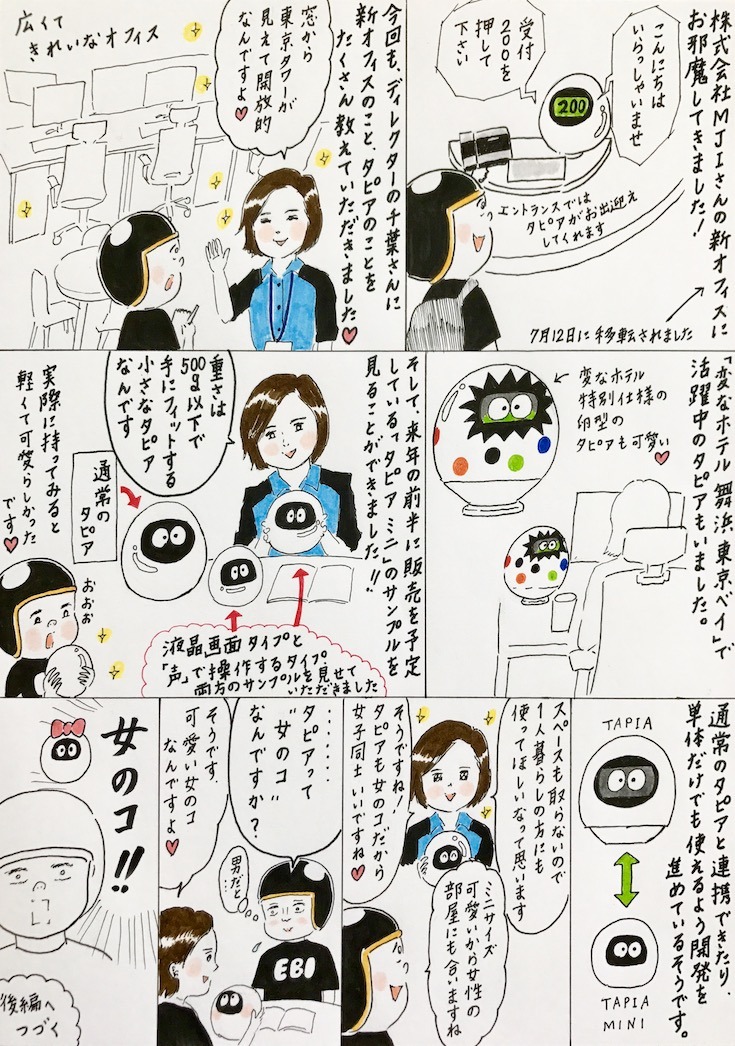 株式会社MJIさんの新オフィスに
お邪魔してきました!
こんにちは
いらっしゃいませ
受付
200を
押して
下さい
200
エントランスでは
タピアがお出迎え
してくれます
7月12日に移転されました
今回も、ディレクターの千葉さんに
新オフィスのこと、タピアのことを
たくさん教えていただきました♥
窓から
東京タワーが
見えて開放的
なんですよ♥
広くて
きれいなオフィス
「変なホテル 舞浜 東京ベイ」で
活躍中のタピアもいました。
変なホテル
特別仕様の
卵型の
タピアも可愛い♥
そして、来年の前半に販売を予定
している「タピア ミニ」のサンプルを
見ることができました!!
重さは
500g以下で
手にフィットする
小さなタピア
なんです
通常の
タピア
実際に持ってみると
軽くて可愛らしかった
です♥
おぉぉ
液晶画面タイプと
「声」で操作するタイプ、
両方のサンプルを見せて
いただきました
通常のタピアと連携できたり、
単体だけでも使えるよう開発を
進めているそうです。
TAPIA
TAPIA
MINI
スペースも取らないので
1人暮らしの方にも
使ってほしいなって思います
ミニサイズ
可愛いから女性の
部屋にも合いますね
そうですね!
タピアも女のコだから
女子同士いいですね♥
……
タピアって
"女のコ"
なんですか?
男だと…
EBI
そうです、
可愛い女のコ
なんですよ♥
女のコ!!
後編へ
つづく